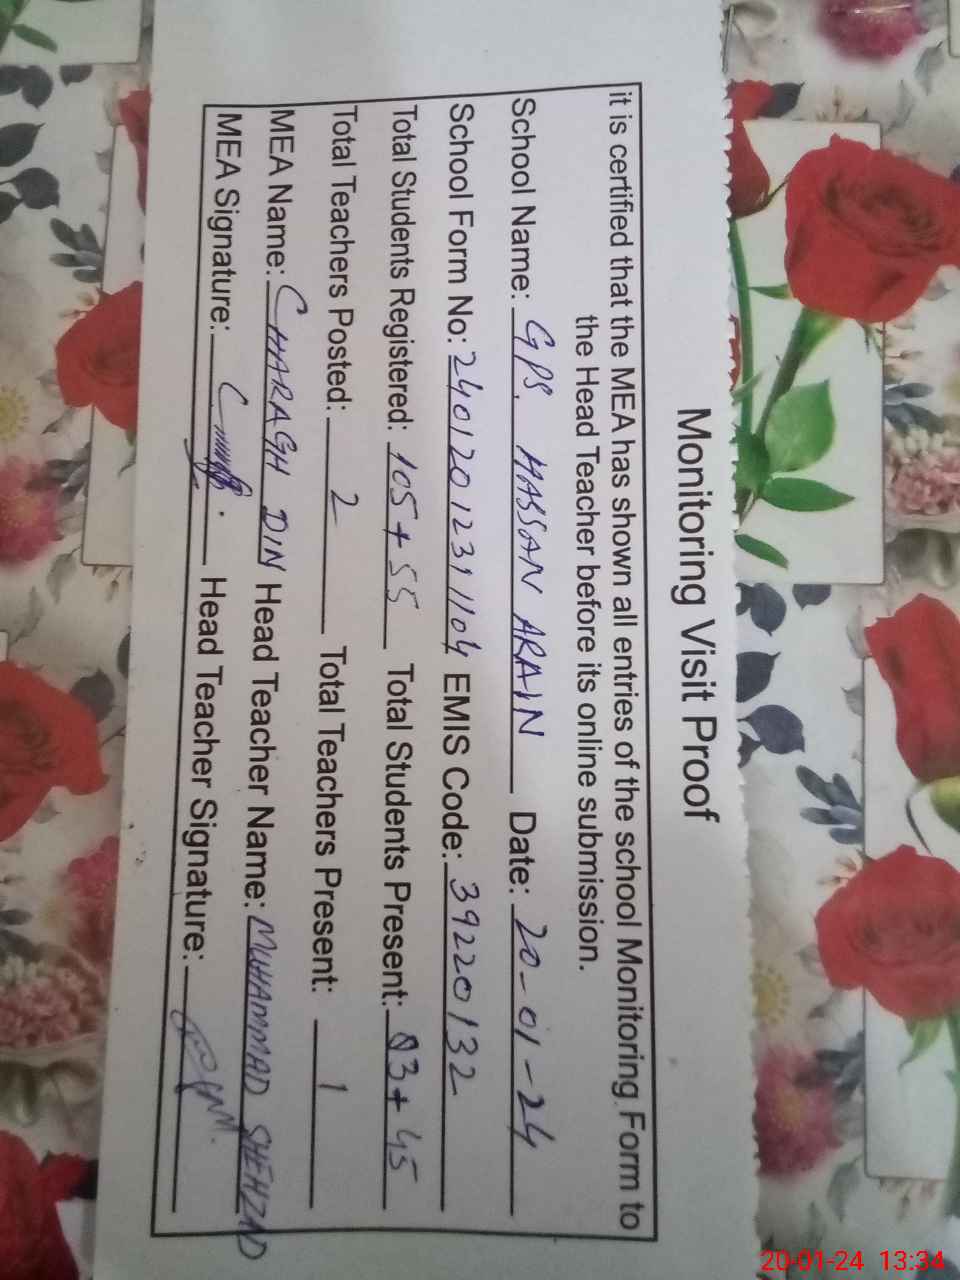 Monitoring Visit Proof
it is certified that the MEA has shown all entries of the school Monitoring Form to
the Head Teacher before its online submission.
School Name: GPS. HASSAN ARAIN Date: 20-01-24
School Form No: 2401201231104 EMIS Code: 39220132
Total Students Registered: 105+55 Total Students Present: 83+45
Total Teachers Posted: 2 Total Teachers Present: 1
MEA Name: CHARAGH DIN Head Teacher Name: MUHAMMAD SHEHZAD
MEA Signature: Head Teacher Signature:
20-01-24 13:34